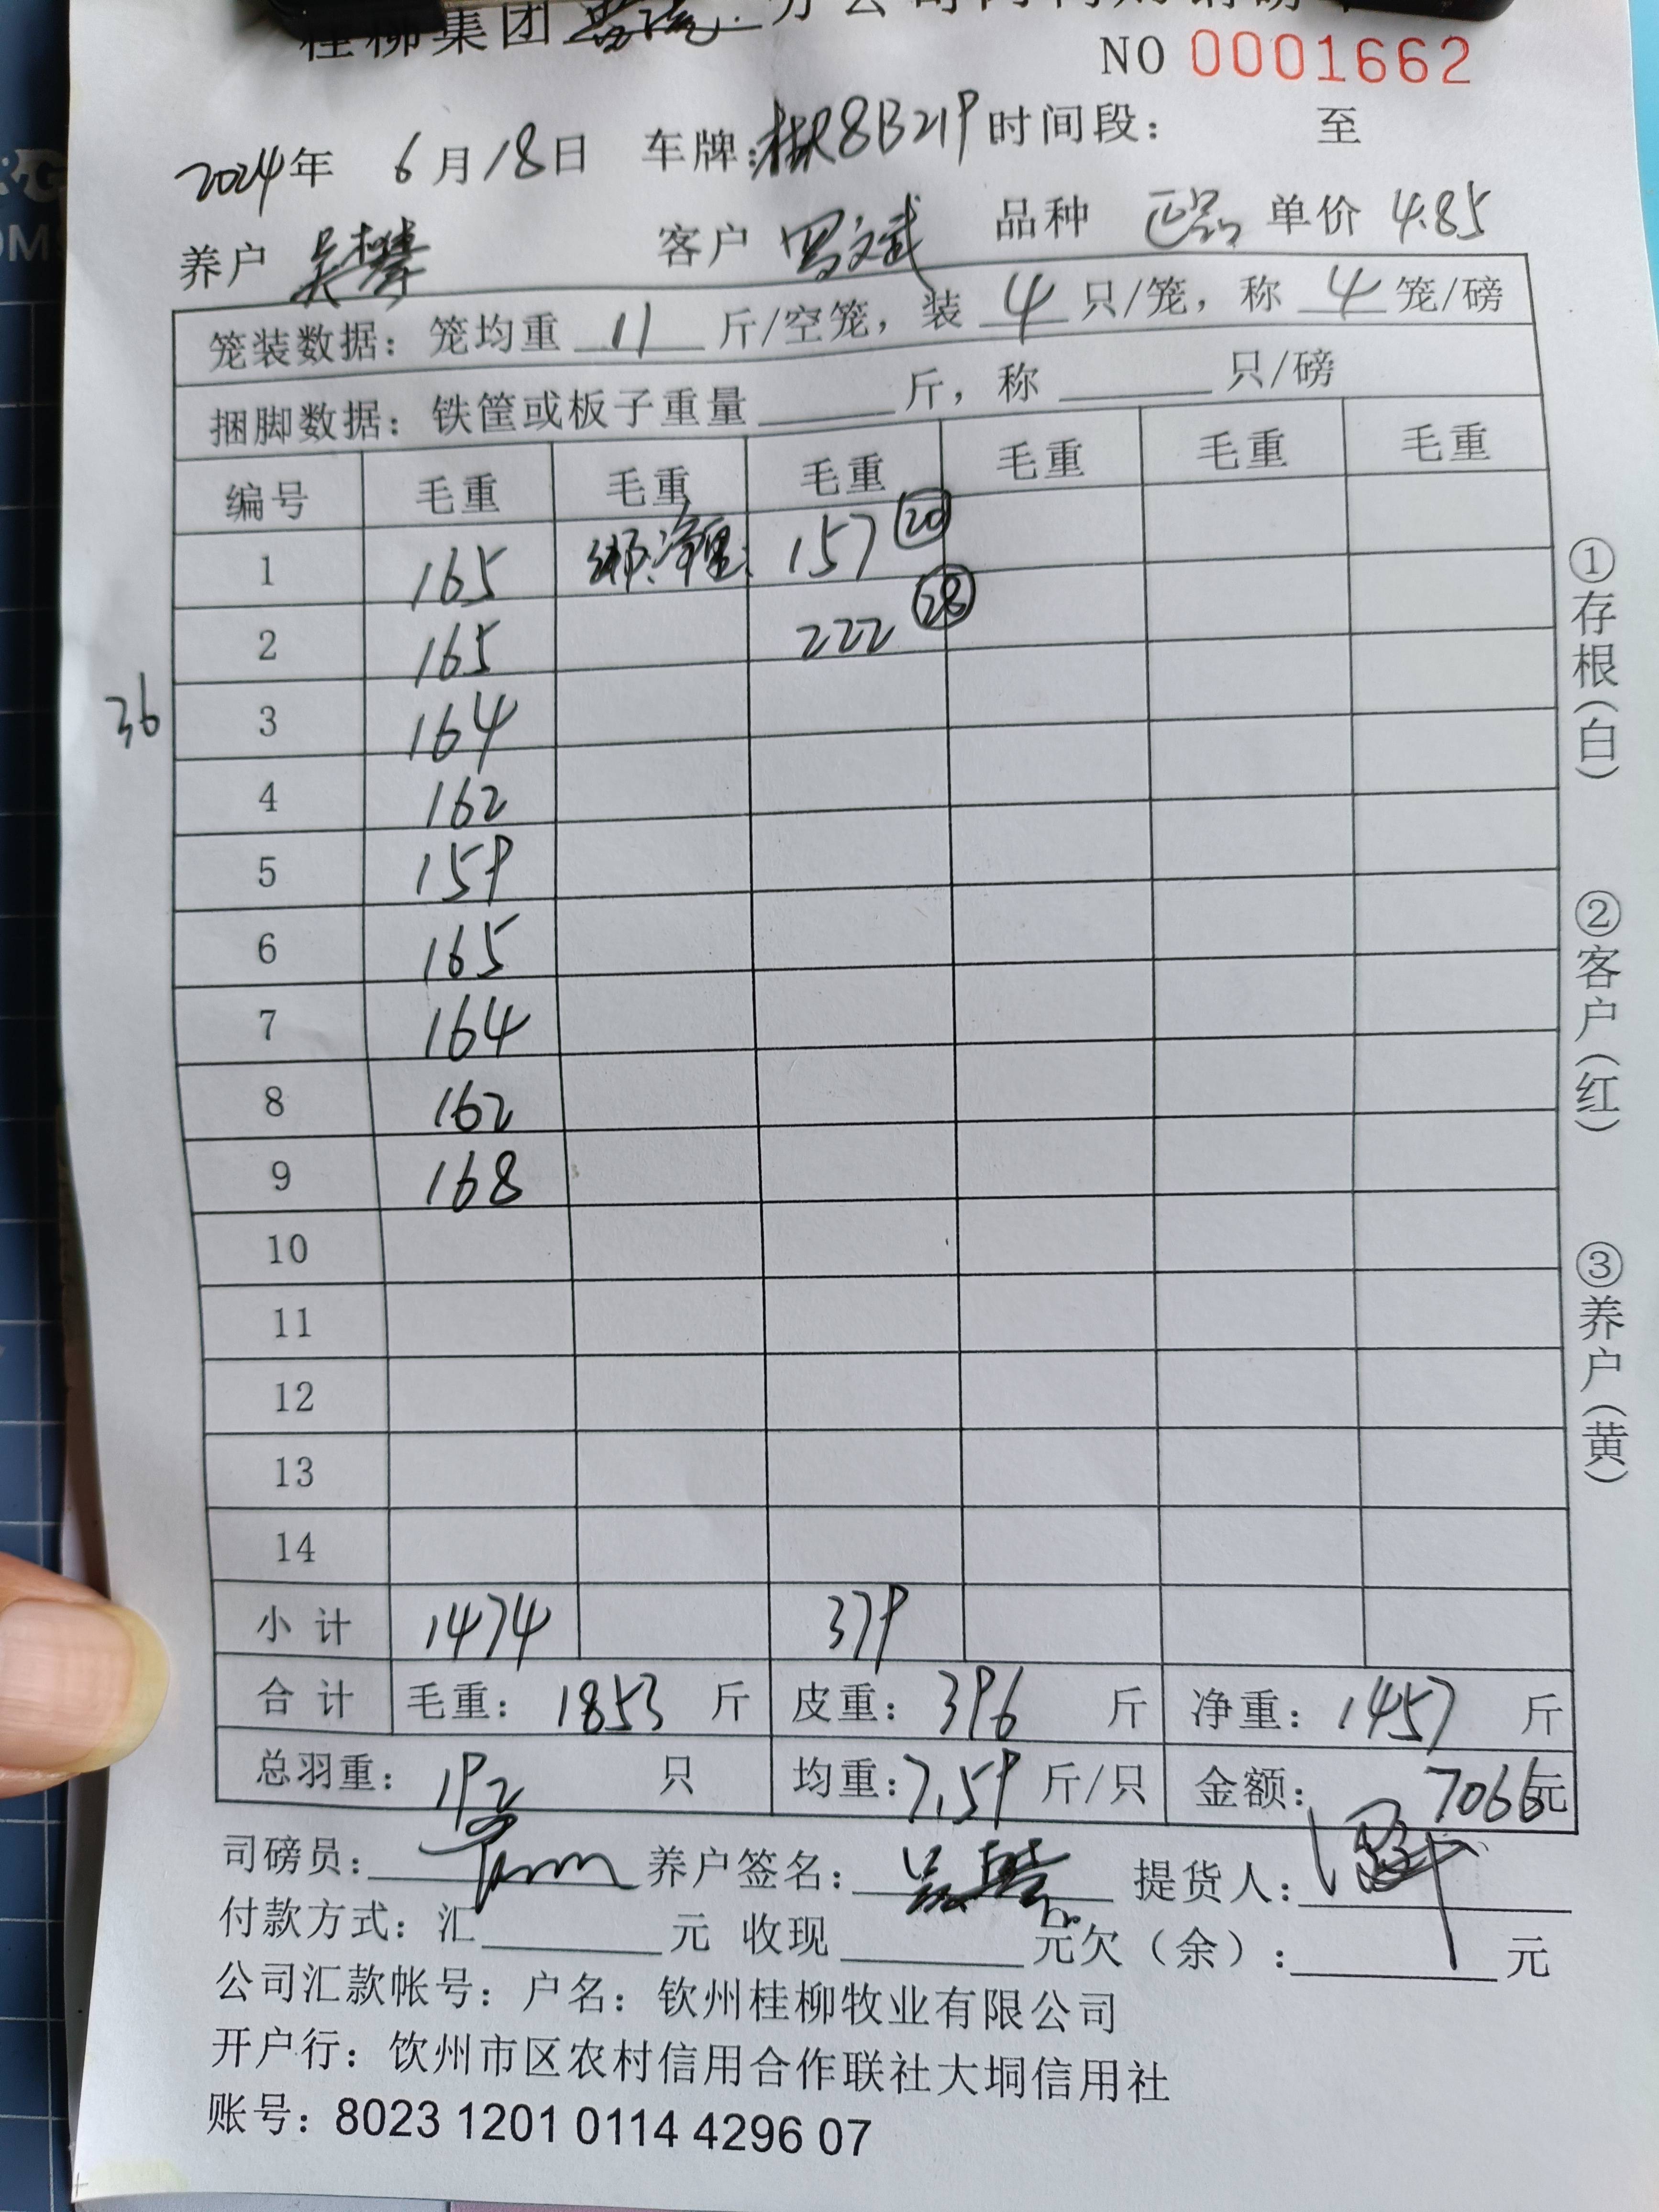 桂柳集团 分公司
NO 0001662
2024年 6月18日 车牌: 8B219 时间段: 至
养户 吴攀 客户 冯文斌 品种 正品 单价 4.85
笼装数据: 笼均重 11 斤/空笼, 装 4 只/笼, 称 4 笼/磅
捆脚数据: 铁筐或板子重量 斤, 称 只/磅
编号 毛重 毛重 毛重 毛重 毛重 毛重
1 165 绑净重: 157 20
2 165 222 28
36
3 164
4 162
5 159
6 165
7 164
8 162
9 168
10
11
12
13
14
小计 1474 379
合计 毛重: 1853 斤 皮重: 396 斤 净重: 1457 斤
总羽重: 192 只 均重: 7.59 斤/只 金额: 7066元
司磅员: 养户签名: 提货人:
付款方式: 汇 元 收现 元欠(余): 元
公司汇款帐号: 户名: 钦州桂柳牧业有限公司
开户行: 钦州市区农村信用合作联社大垌信用社
账号: 8023 1201 0114 4296 07
①存根(白)
②客户(红)
③养户(黄)